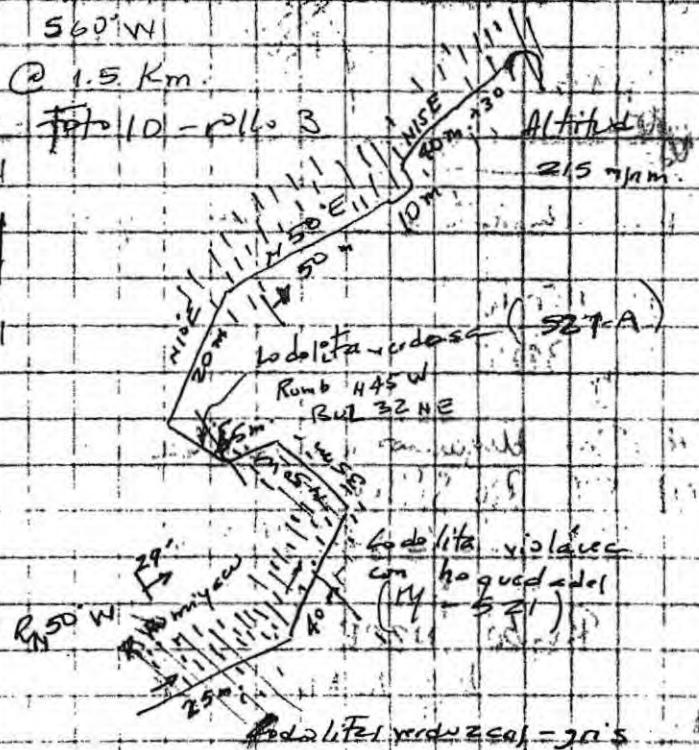 S60°W
@ 1.5 Km.
Foto 10 - rollo 3
Altitud
215 mpnm.
N15E
40m
+30
10m
N50°E
50m
N10E
20m
Lodolita verdosa (527-A)
Rumb N45W
Buz 32 NE
Lodolita violácea
con hoquedades
(M-521)
29°
R N 50°W
40m
25m
Lodolitas verduzcas - gris